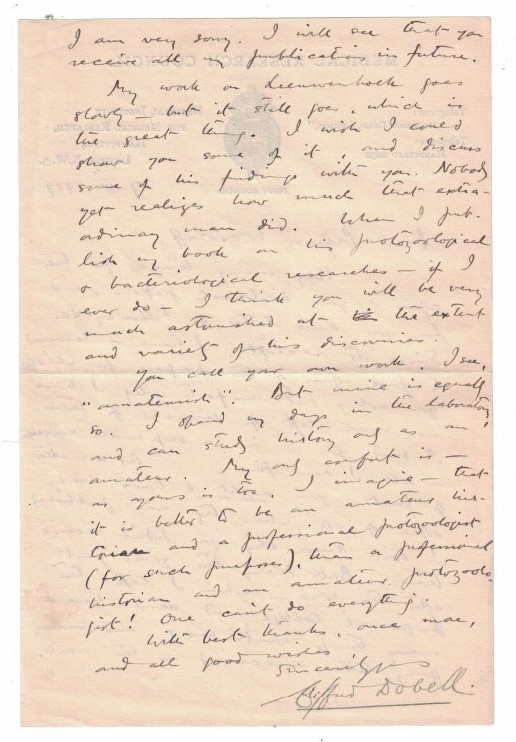 I am very sorry. I will see that you
receive all my publications in future.
My work on Leeuwenhoek goes
slowly — but it still goes, which is
the great thing. I wish I could
show you some of it, and discuss
some of his findings with you. Nobody
yet realizes how much that extra-
ordinary man did. When I pub-
lish my book on his protozoological
& bacteriological researches — if I
ever do — I think you will be very
much astonished at the extent
and variety of his discoveries.
You call your own work, I see,
"amateurish". But mine is equally
so. I spend my days in the laboratory,
and can study history only as an
amateur. My only comfort is —
as yours is too, I imagine — that
it is better to be an amateur his-
torian and a professional protozoologist
(for such purposes), than a professional
historian and an amateur protozoolo-
gist! One can't do everything.
With best thanks, once more,
and all good wishes
Sincerely yours
Clifford Dobell.